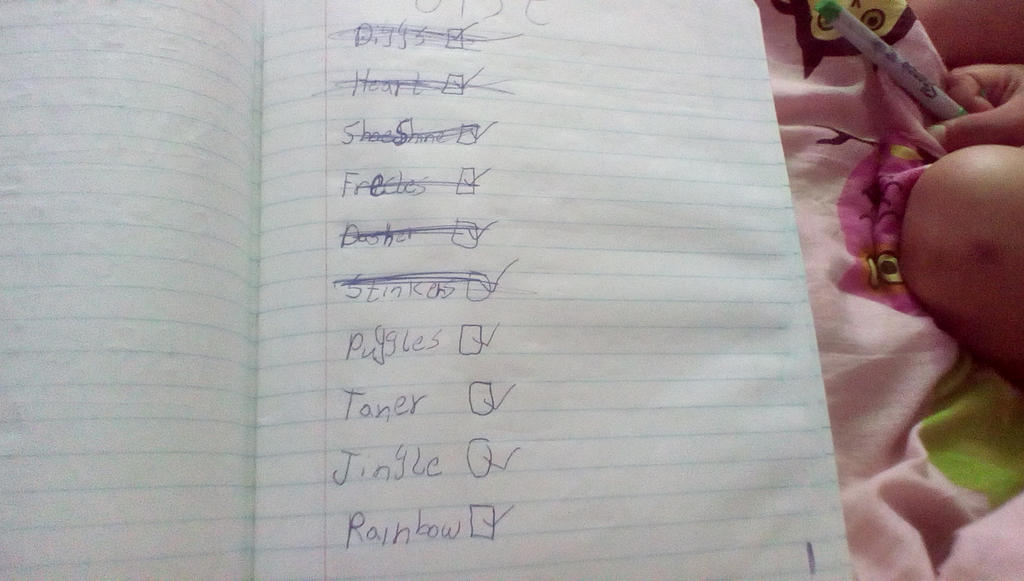 Diggs
Heart
ShoeShine
Frecles
Dasher
Stinkers
Puggles
Taner
Jingle
Rainbow